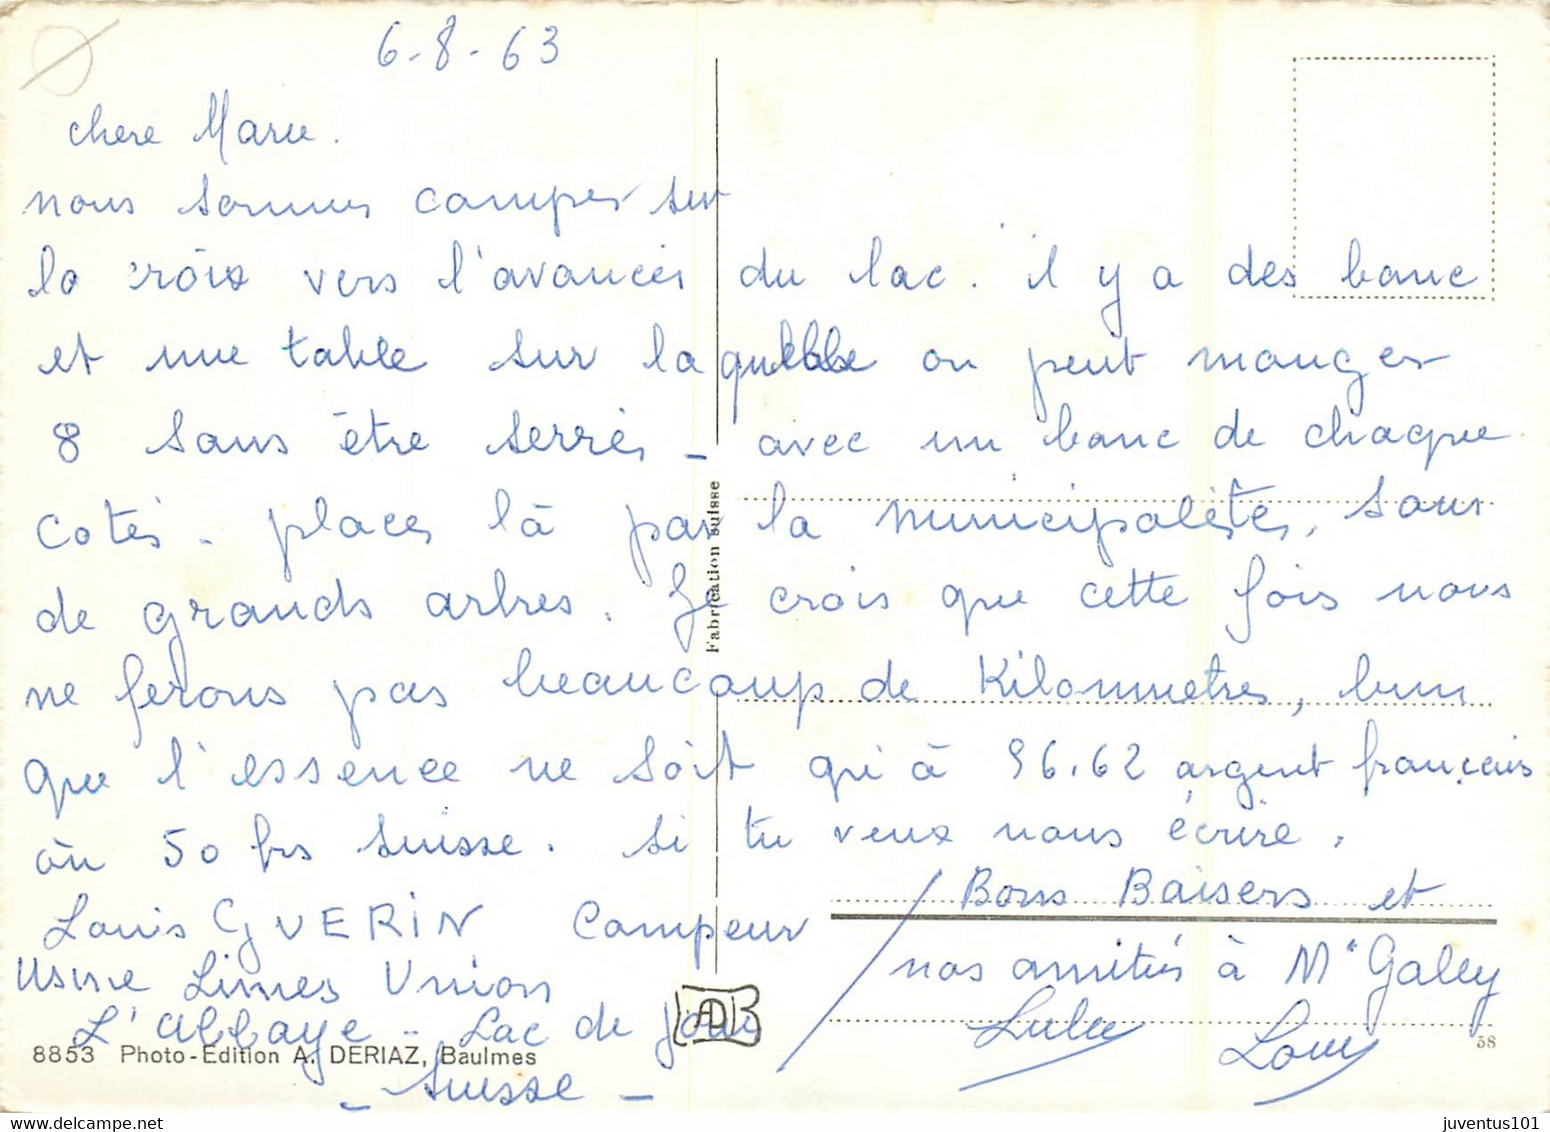 6-8-63
chere Marie.
nous sommes camper sur
la croix vers l'avancés du lac. il y a des banc
et une table sur laquelle on peut manger
8 sans être serrés - avec un banc de chaque
cotés - places là par la municipalités, sous
de grands arbres. Je crois que cette fois nous
ne ferons pas beaucoup de Kilommetres, bien
que l'essence ne soit qu'à 56.62 argent français
où 50 frs suisse. si tu veux nous écrire.
Louis GUERIN Campeur
Usine Limes Union
L'Abbaye - Lac de Joux
- Suisse -
Bons Baisers et
nos amitiés à Me Galey
Lulu Louis
Fabrication suisse
AD
8853 Photo-Edition A. DERIAZ, Baulmes
58
www.delcampe.net
juventus101